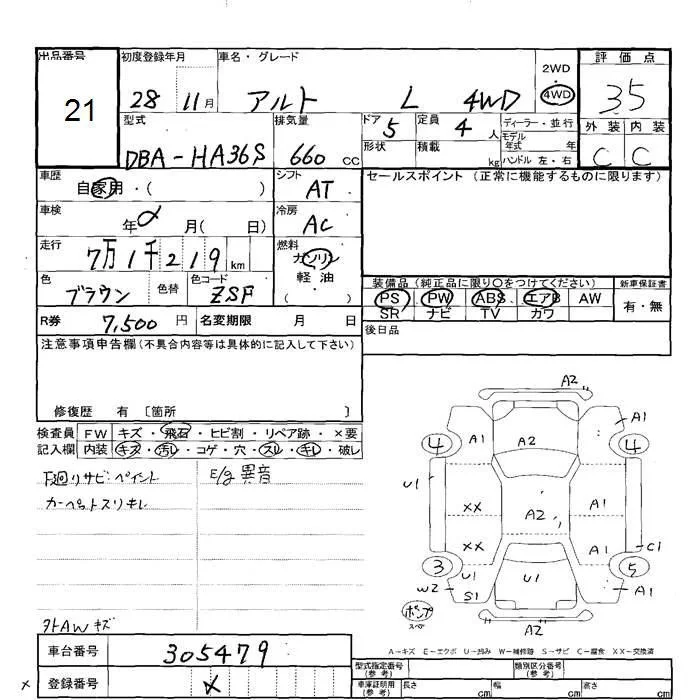 出品番号 21
初度登録年月 28 11月
車名・グレード アルト L 4WD
2WD 4WD
評価点 35
型式 DBA-HA36S
排気量 660 CC
ドア 5
形状
定員 4 人
積載 kg
ディーラー・並行
モデル年式 年
ハンドル 左・右
外装 内装
C C
車歴 自家用・( )
シフト AT
セールスポイント (正常に機能するものに限ります)
車検 年 月( 日)
冷房 AC
走行 7万1千219 km
燃料 ガソリン 軽油
色 ブラウン 色替 色コード ZSF
装備品(純正品に限り○をつけてください) 新車保証書
PS・PW・ABS・エアB AW 有・無
SR ナビ TV カワ
R券 7,500円 名変期限 月 日
後日品
注意事項申告欄(不具合内容等は具体的に記入して下さい)
修復歴 有 〔箇所 〕
検査員記入欄
FW キズ・飛石・ヒビ割・リペア跡・×要
内装 キズ・汚レ・コゲ・穴・スレ・キレ・破レ
下廻りサビ:ペイント E/g異音
カーペットスリキレ
A2
A1 A1 A2
4 4
U1 XX A2 A1
XX A1 C1
3 5
W2 U1 S1 U1 A1
ポンプ
スペア
A2
外AWキズ
A→キズ E→エクボ U→凹み W→補修跡 S→サビ C→腐食 XX→交換済
車台番号 305479
型式指定番号(参考) 類別区分番号(参考)
× 登録番号 ×
車庫証明用(参考) 長さ cm 幅 cm 高さ cm